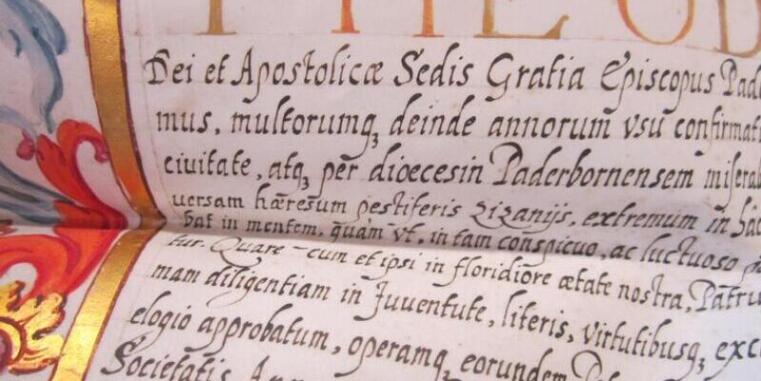 THEOD
Dei et Apostolicæ Sedis Gratia Episcopus Pad
mus, multorumq; deinde annorum vsu confirmat
ciuitate, atq; per dioecesin Paderbornensem misera
uersam hæresum pestiferis zizanijs, extremum in hac
bat in mentem, quam vt, in tam conspicuo, ac luctuoso
tur. Quare cum et ipsi in floridiore ætate nostra, Patru
mam diligentiam in Juuentute, literis, virtutibusq; exc
elogio approbatum, operamq; eorundem
Societatis